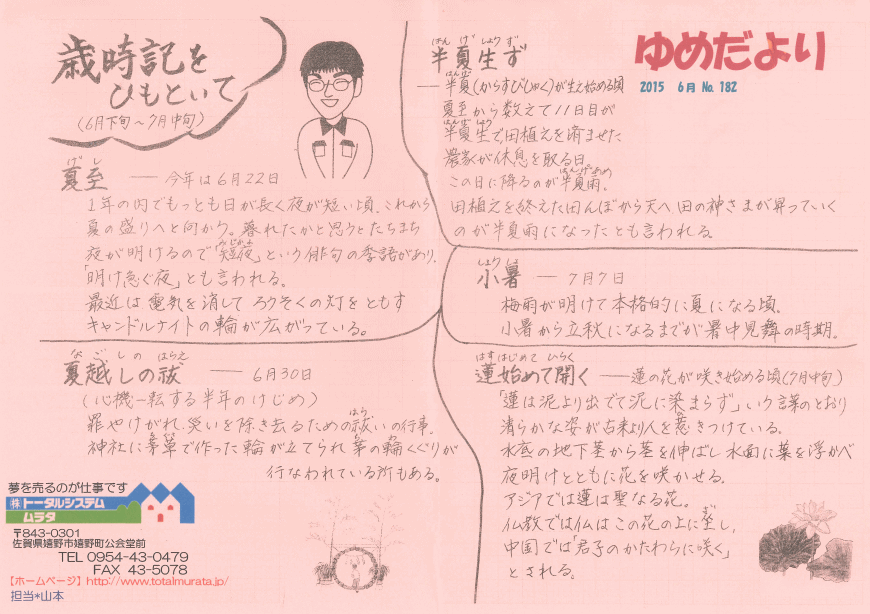 歳時記を
ひもといて
(6月下旬~7月中旬)
げし
夏至 ― 今年は6月22日
1年の内でもっとも日が長く夜が短い頃。これから
夏の盛りへと向かう。暮れたかと思うとたちまち
みじかよ
夜が明けるので「短夜」という俳句の季語があり、
「明け急ぐ夜」とも言われる。
最近は電気を消してろうそくの灯をともす
キャンドルナイトの輪が広がっている。
なごしの はらえ
夏越しの祓 ― 6月30日
(心機一転する半年のけじめ)
はら
罪やけがれ、災いを除き去るための祓いの行事。
神社に茅草で作った輪が立てられ茅の輪くぐりが
行なわれている所もある。
夢を売るのが仕事です
㈱トータルシステム
ムラタ
〒843-0301
佐賀県嬉野市嬉野町公会堂前
TEL 0954-43-0479
FAX 43-5078
【ホームページ】http://www.totalmurata.jp/
担当*山本
ゆめだより
2015 6月 No. 182
はん げ しょう ず
半夏生ず
はんげ
―半夏(からすびしゃく)が生え始める頃
夏至から数えて11日目が
はんげしょう
半夏生で、田植えを済ませた
農家が休息を取る日。
はんげあめ
この日に降るのが半夏雨。
田植えを終えた田んぼから天へ、田の神さまが昇っていく
のが半夏雨になったとも言われる。
しょうしょ
小暑 ― 7月7日
梅雨が明けて本格的に夏になる頃。
小暑から立秋になるまでが暑中見舞の時期。
はすはじめて ひらく
蓮始めて開く ―蓮の花が咲き始める頃(7月中旬)
「蓮は泥より出でて泥に染まらず」いう諺のとおり
清らかな姿が古来より人を惹きつけている。
水底の地下茎から茎を伸ばし水面に葉を浮かべ
夜明けとともに花を咲かせる。
アジアでは蓮は聖なる花。
ざ
仏教では仏はこの花の上に坐し、
中国では「君子のかたわらに咲く」
とされる。